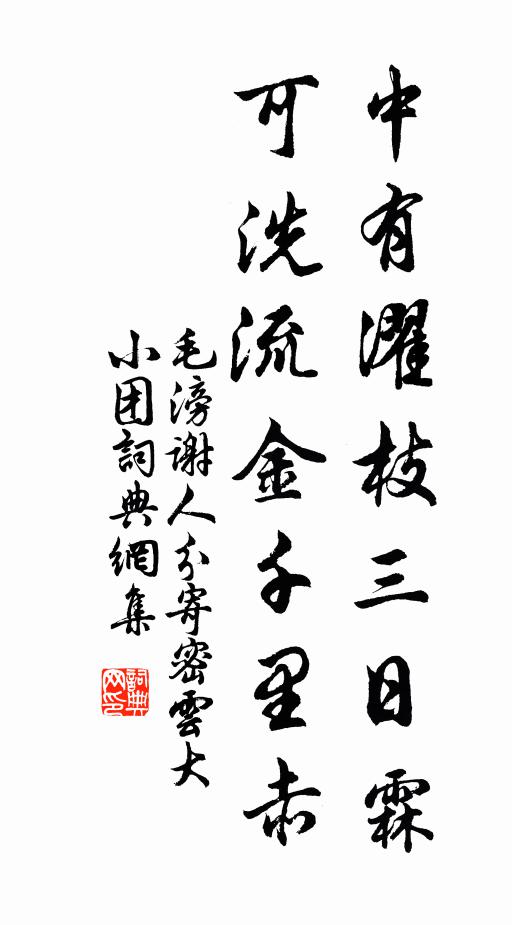 中有濯枝三日霖
可洗流金千里赤
毛滂謝人分寄密雲大
小团詞典網集
詞典网印